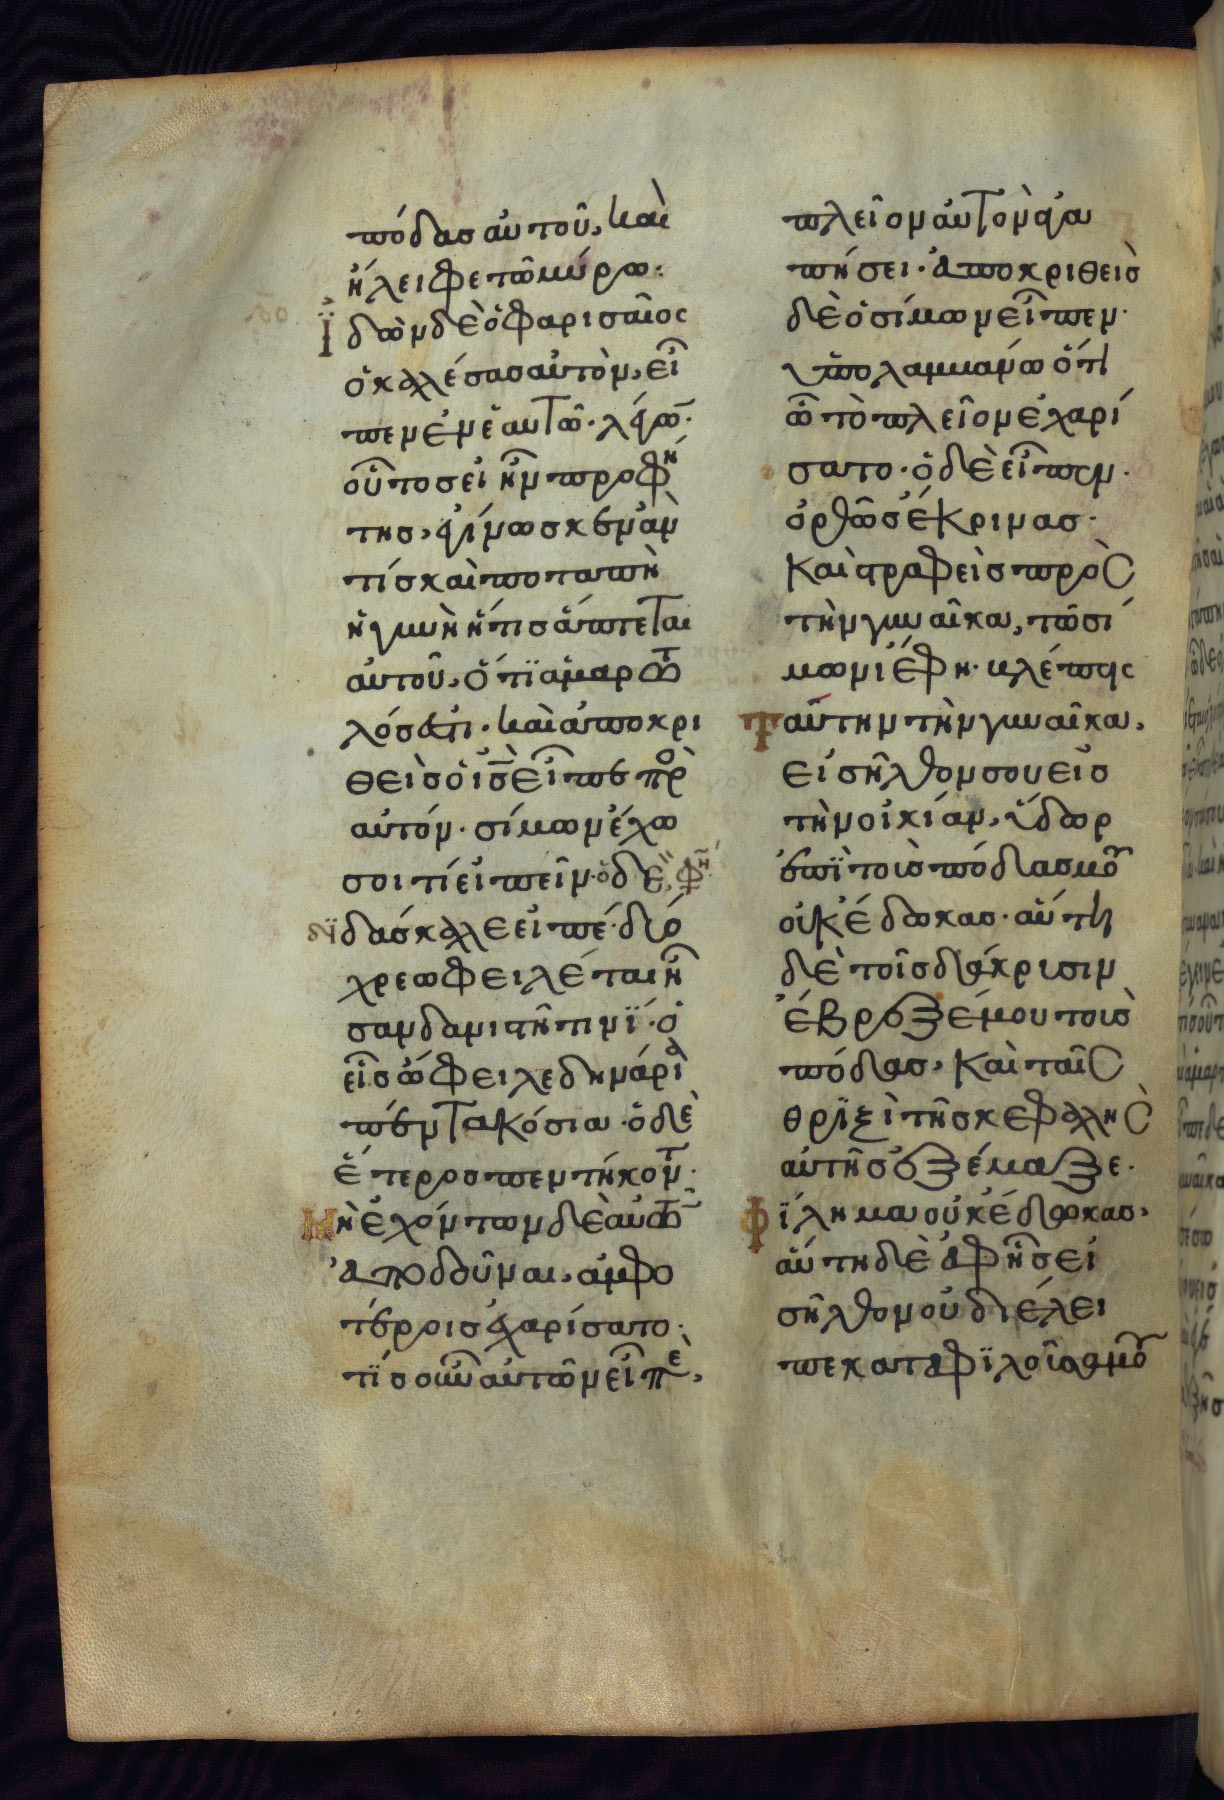 πόδας αὐτοῦ, καὶ
ἤλειφε τῶ μύρω:
Ἰδὼν δὲ ὁ φαρισαῖος
ὁ καλέσας αὐτὸν, εἶ
πεν ἐν ἑαυτῶ· λέγω̅·
οὗτος εἰ ἦν προφή
της, ἐγίνωσκεν ἂν
τίς καὶ ποταπὴ
ἡ γυνὴ ἥτις ἅπτεται
αὐτοῦ, ὅτι ἁμαρτω
λός ἐστι· καὶ ἀποκρι
θεὶς ὁ ι̅ς̅ εἶπε πρὸ
αὐτόν· σίμων ἔχω
σοι τί εἰπεῖν· ὁ δέ, φη̅
διδάσκαλε εἰπέ· δύο
χρεωφειλέται ἦ
σαν δανιστῆ τινί· ὁ
εἷς ὤφειλε δηνάρια
πεντακόσια· ὁ δὲ
ἕτερος πεντήκοντ·
Μὴ ἐχόντων δὲ αὐτῶ
ἀποδοῦναι, ἀμφο
τέροις ἐχαρίσατο·
τίς οὖν αὐτῶν εἶπὲ,
πλεῖον αὐτὸν ἀγα
πήσει· ἀποκριθεὶς
δὲ ὁ σίμων εἶπεν·
ὑπολαμμανω ὅτι
ὧ τὸ πλεῖον ἐχαρί
σατο· ὁ δὲ εἶπεν·
ὀρθῶς ἔκρινας·
Καὶ στραφεὶς πρὸς
τὴν γυναῖκα, τῶ σί
μωνι ἔφη· βλέπεις
ταύτην τὴν γυναῖκα,
εἰσῆλθον σου εἰς
τὴν οἰκίαν, ὕδωρ
ἐπὶ τοὺς πόδας μου
οὐκ έδωκας· αὕτη
δὲ τοῖς δάκρισιν
ἔβρεξέ μου τοὺς
πόδας, Καὶ ταῖς
θριξὶ τῆς κεφαλῆς
αὐτῆς ἐξέμαξε·
Φίλημα οὐκ ἔδωκας,
αὕτη δὲ ἀφ ἧς εἰ
σῆλθον οὐ διέλει
πε καταφιλοῦσα μου